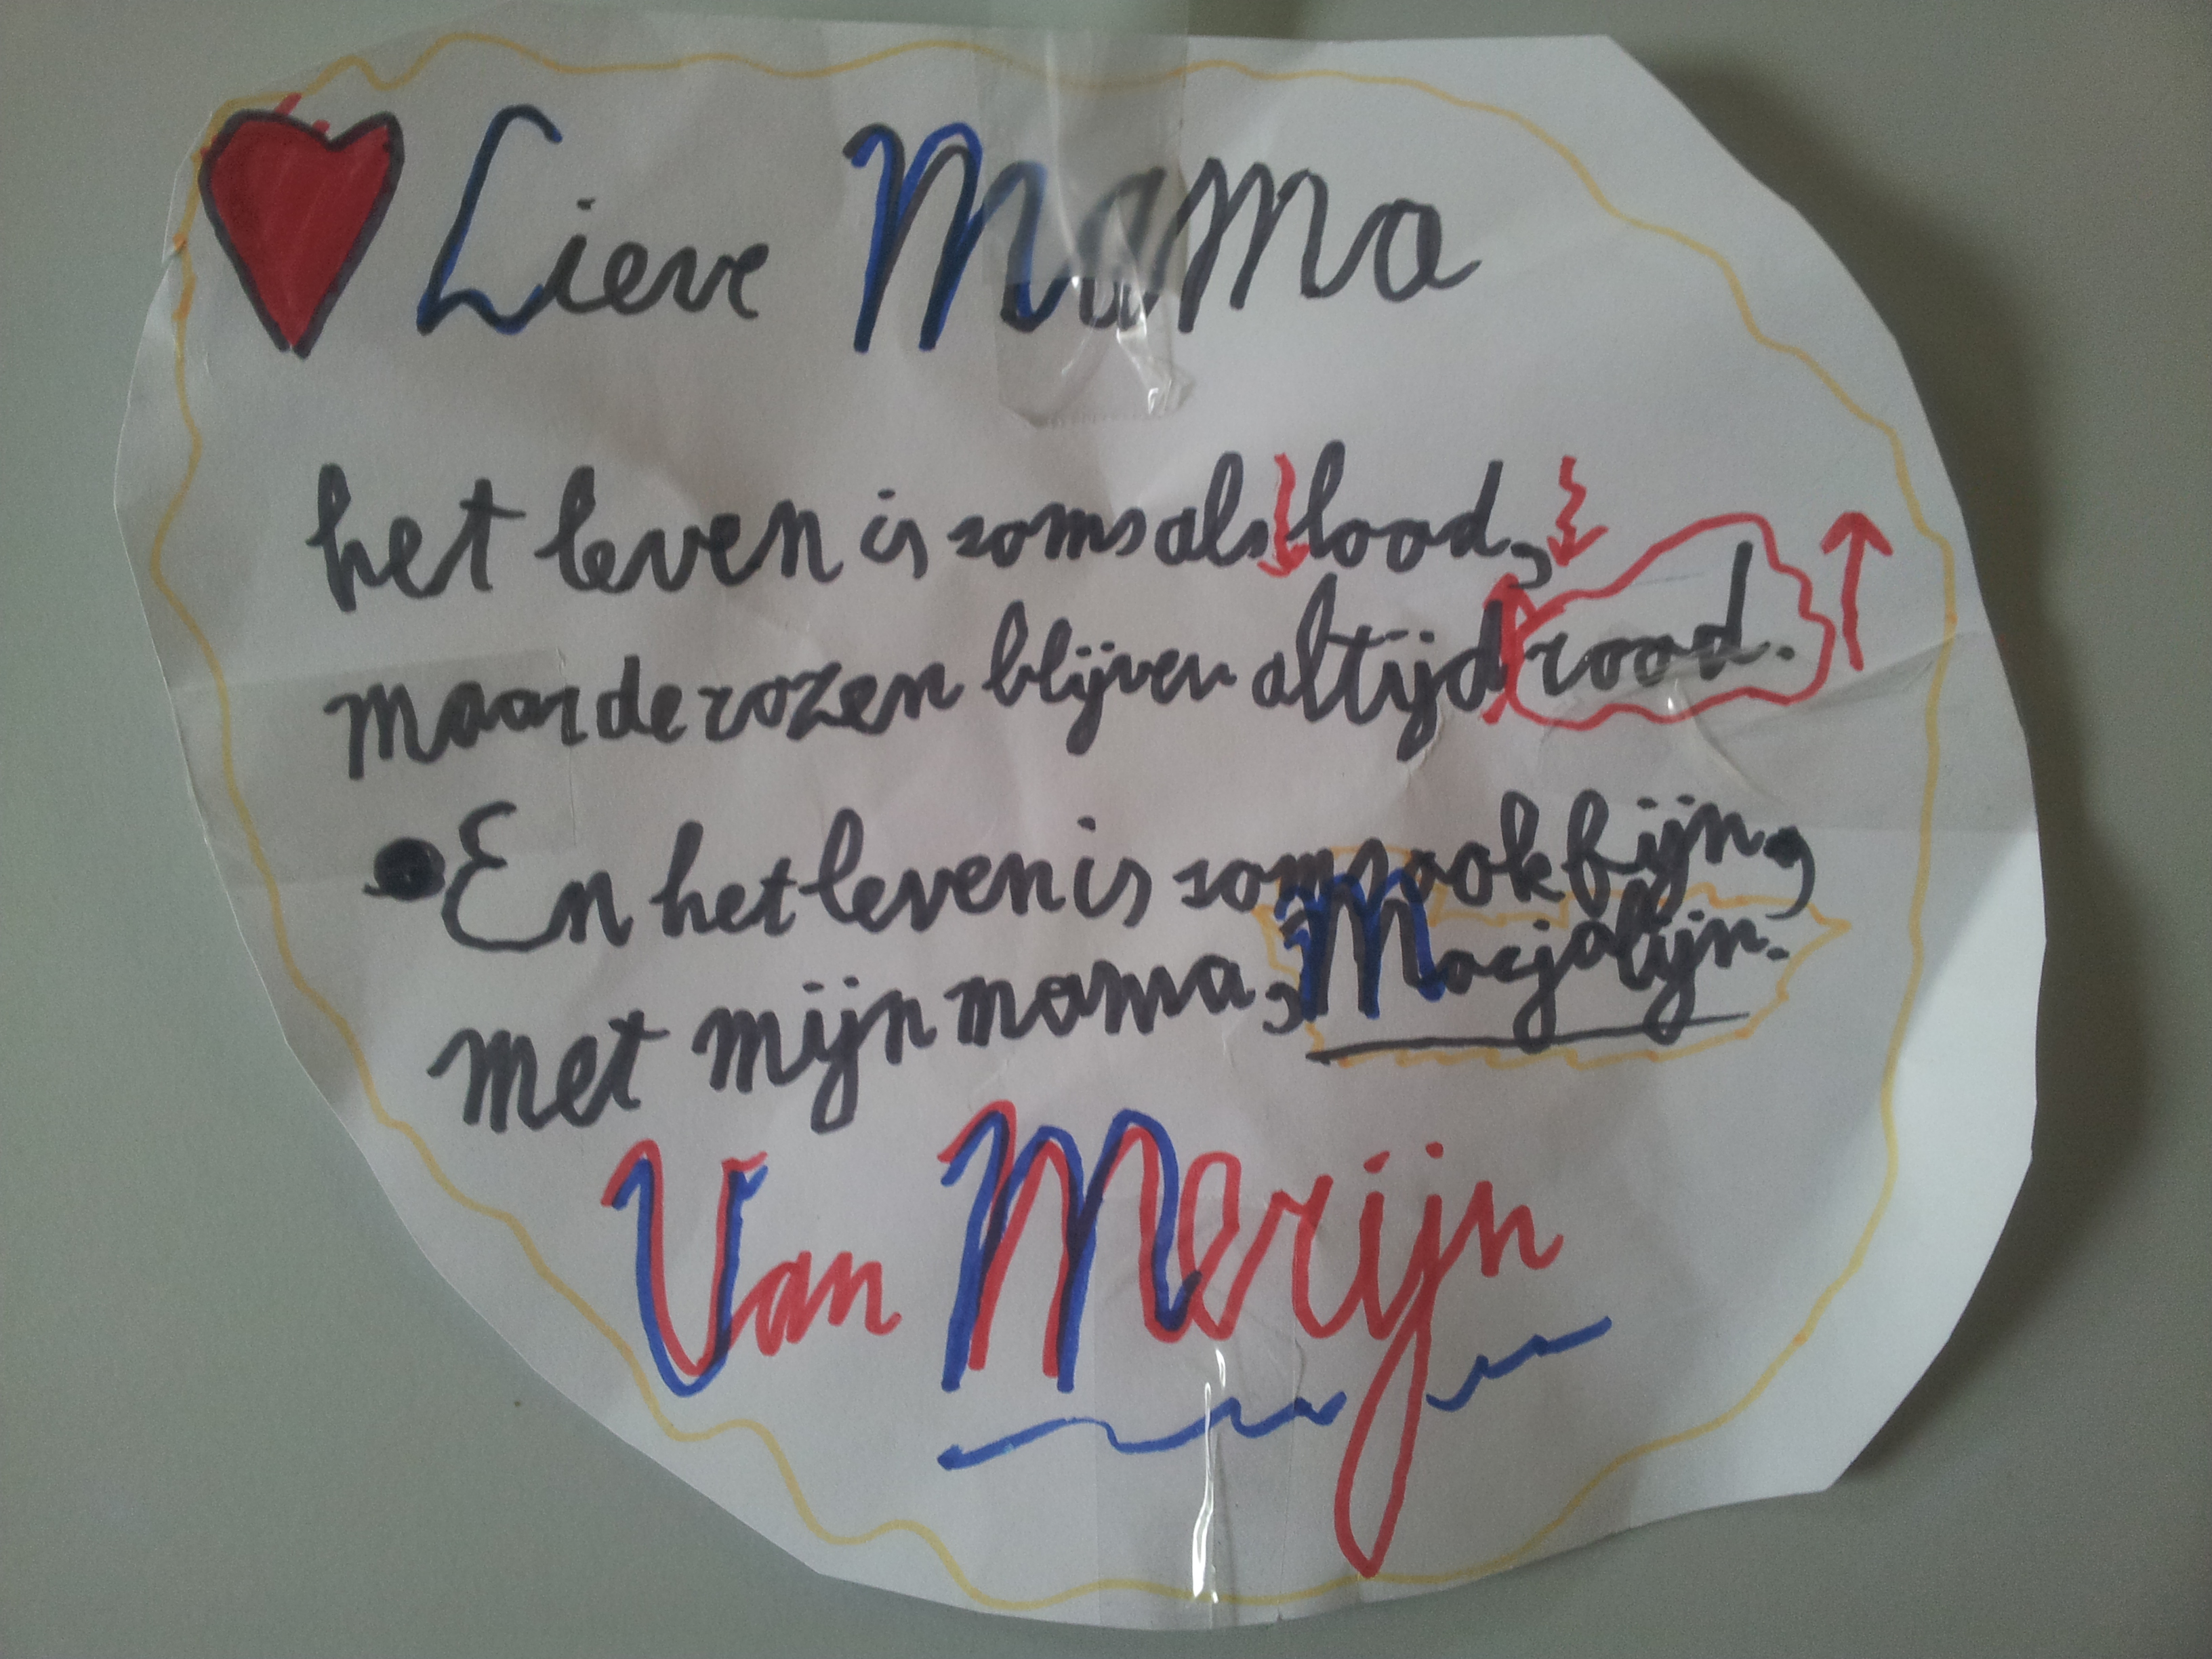 Lieve Mama
het leven is soms als lood,
maar de rozen blijven altijd rood.
En het leven is soms ook fijn,
met mijn mama, Marjolijn.
Van Merijn